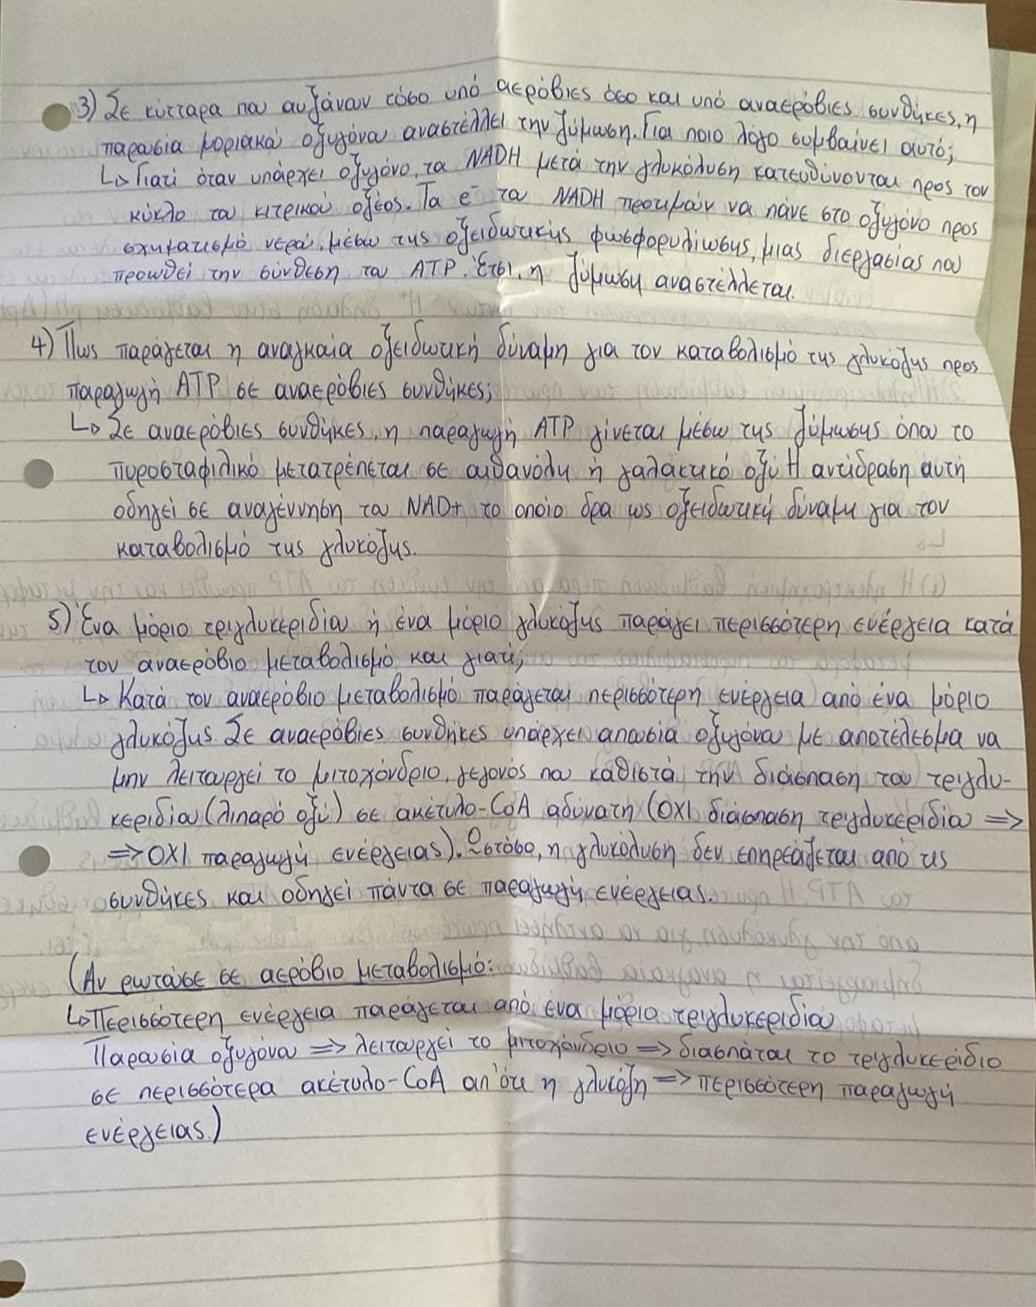 3) Σε κύτταρα που αυξάνουν τόσο υπό αερόβιες όσο και υπό αναερόβιες συνθήκες, η
παρουσία μοριακού οξυγόνου αναστέλλει την ζύμωση. Για ποιο λόγο συμβαίνει αυτό;
↳ Γιατί όταν υπάρχει οξυγόνο, τα NADH μετά την γλυκόλυση κατευθύνονται προς τον
κύκλο του κιτρικού οξέος. Τα e⁻ του NADH προτιμούν να πάνε στο οξυγόνο προς
σχηματισμό νερού, μέσω της οξειδωτικής φωσφορυλίωσης, μιας διεργασίας που
προωθεί την σύνθεση του ATP. Έτσι, η ζύμωση αναστέλλεται.
4) Πως παράγεται η αναγκαία οξειδωτική δύναμη για τον καταβολισμό της γλυκόζης προς
παραγωγή ATP σε αναερόβιες συνθήκες;
↳ Σε αναερόβιες συνθήκες, η παραγωγή ATP γίνεται μέσω της ζύμωσης όπου το
πυροσταφιλικό μετατρέπεται σε αιθανόλη ή γαλακτικό οξύ. Η αντίδραση αυτή
οδηγεί σε αναγέννηση του NAD+ το οποίο δρα ως οξειδωτική δύναμη για τον
καταβολισμό της γλυκόζης.
5) Ένα μόριο τριγλυκεριδίου ή ένα μόριο γλυκόζης παράγει περισσότερη ενέργεια κατά
τον αναερόβιο μεταβολισμό και γιατί;
↳ Κατά τον αναερόβιο μεταβολισμό παράγεται περισσότερη ενέργεια από ένα μόριο
γλυκόζης. Σε αναερόβιες συνθήκες υπάρχει απουσία οξυγόνου με αποτέλεσμα να
μην λειτουργεί το μιτοχόνδριο, γεγονός που καθιστά την διάσπαση του τριγλυ-
κεριδίου (λιπαρό οξύ) σε ακέτυλο-CoA αδύνατη (ΟΧΙ διάσπαση τριγλυκεριδίου ⇒
⇒ ΟΧΙ παραγωγή ενέργειας). Ωστόσο, η γλυκόλυση δεν επηρεάζεται από τις
συνθήκες και οδηγεί πάντα σε παραγωγή ενέργειας.
(Αν ρωτούσε σε αερόβιο μεταβολισμό:
↳ Περισσότερη ενέργεια παράγεται από ένα μόριο τριγλυκεριδίου
Παρουσία οξυγόνου ⇒ λειτουργεί το μιτοχόνδριο ⇒ διασπάται το τριγλυκερίδιο
σε περισσότερα ακέτυλο-CoA απ'ότι η γλυκόζη ⇒ περισσότερη παραγωγή
ενέργειας.)